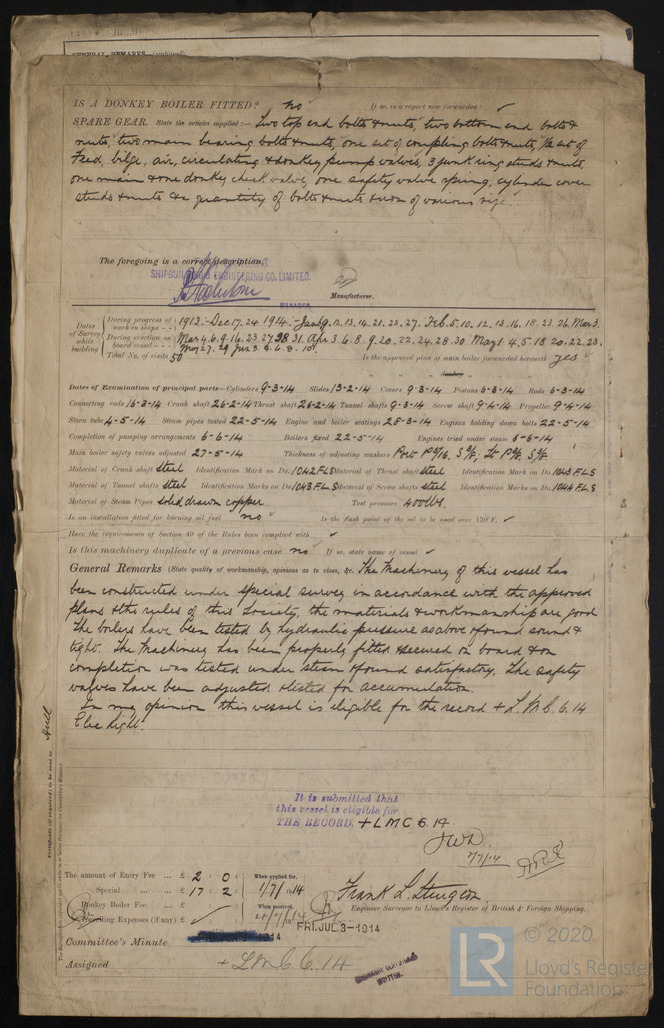 GENERAL REMARKS (continued)
IS A DONKEY BOILER FITTED? no If so, is a report now forwarded? ✓
SPARE GEAR. State the articles supplied:— Two top end bolts & nuts, two bottom end bolts &
nuts, two main bearing bolts & nuts, one set of coupling bolts & nuts, set of
Feed, bilge, air, circulating & donkey pump valves, 3 junk ring studs & nuts,
one main & one donkey check valve, one safety valve spring, cylinder cover
studs & nuts & a quantity of bolts & nuts & iron of various size.
The foregoing is a correct description,
SHIPBUILDING & ENGINEERING CO. LIMITED.
MANAGER
Manufacturer.
Dates of Survey while building
During progress of work in shops - - 1913.- Dec. 17. 24 1914.- Jan. 6. 9. 12. 13. 14. 21. 23. 27. Feb. 5. 10. 12. 13. 16. 18. 23. 26. Mar 3.
During erection on board vessel - - - Mar 4. 6. 9. 16. 23. 27. 28. 31. Apr. 3. 6. 8. 9. 20. 22. 24. 28. 30. May 1. 4. 5. 18. 20. 22. 23.
May 27. 29. Jun 3. 4. 6. 8. 10.
Total No. of visits 50 Is the approved plan of main boiler forwarded herewith yes ✓
" " " donkey " " "
Dates of Examination of principal parts—Cylinders 9-3-14 Slides 13-2-14 Covers 9-3-14 Pistons 6-3-14 Rods 6-3-14
Connecting rods 16-3-14 Crank shaft 26-2-14 Thrust shaft 26-2-14 Tunnel shafts 9-3-14 Screw shaft 9-4-14 Propeller 9-4-14
Stern tube 4-5-14 Steam pipes tested 22-5-14 Engine and boiler seatings 28-3-14 Engines holding down bolts 22-5-14
Completion of pumping arrangements 6-6-14 Boilers fixed 22-5-14 Engines tried under steam 6-6-14
Main boiler safety valves adjusted 27-5-14 Thickness of adjusting washers
Material of Crank shaft Steel Identification Mark on Do. 1042 FLS Material of Thrust shaft steel Identification Mark on Do. 1043 FLS
Material of Tunnel shafts Steel Identification Marks on Do. 1043 FLS Material of Screw shafts steel Identification Marks on Do. 1044 FLS
Material of Steam Pipes solid drawn copper Test pressure 400 lbs.
Is an installation fitted for burning oil fuel no ✓ Is the flash point of the oil to be used over 150°F. ✓
Have the requirements of Section 49 of the Rules been complied with ✓
Is this machinery duplicate of a previous case no ✓ If so, state name of vessel ✓
General Remarks (State quality of workmanship, opinions as to class, &c. The Machinery of this vessel has
been constructed under special survey in accordance with the approved
plans & the rules of this Society, the materials & workmanship are good
The boilers have been tested by hydraulic pressure as above & found sound &
tight. The Machinery has been properly fitted & secured on board & on
completion was tested under steam & found satisfactory. The safety
valves have been adjusted & tested for accumulation.
In my opinion this vessel is eligible for the record + L.M.C. 6.14
Elec Light.
Certificate (if required) to be sent to Hull
It is submitted that
this vessel is eligible for
THE RECORD. + LMC 6.14.
JWD
7/7/14
The amount of Entry Fee ... £ 2 : 0 : When applied for,
Special ... ... £ 17 : 2 : 1/7/1914
Donkey Boiler Fee ... £ : : When received,
Travelling Expenses (if any) £ ✓
Frank L. Sturgeon
Engineer Surveyor to Lloyd's Register of British & Foreign Shipping.
Committee's Minute
FRI. JUL. 3-1914
Assigned + LMC 6.14
WRITTEN.
LR
© 2020
Lloyd's Register
Foundation